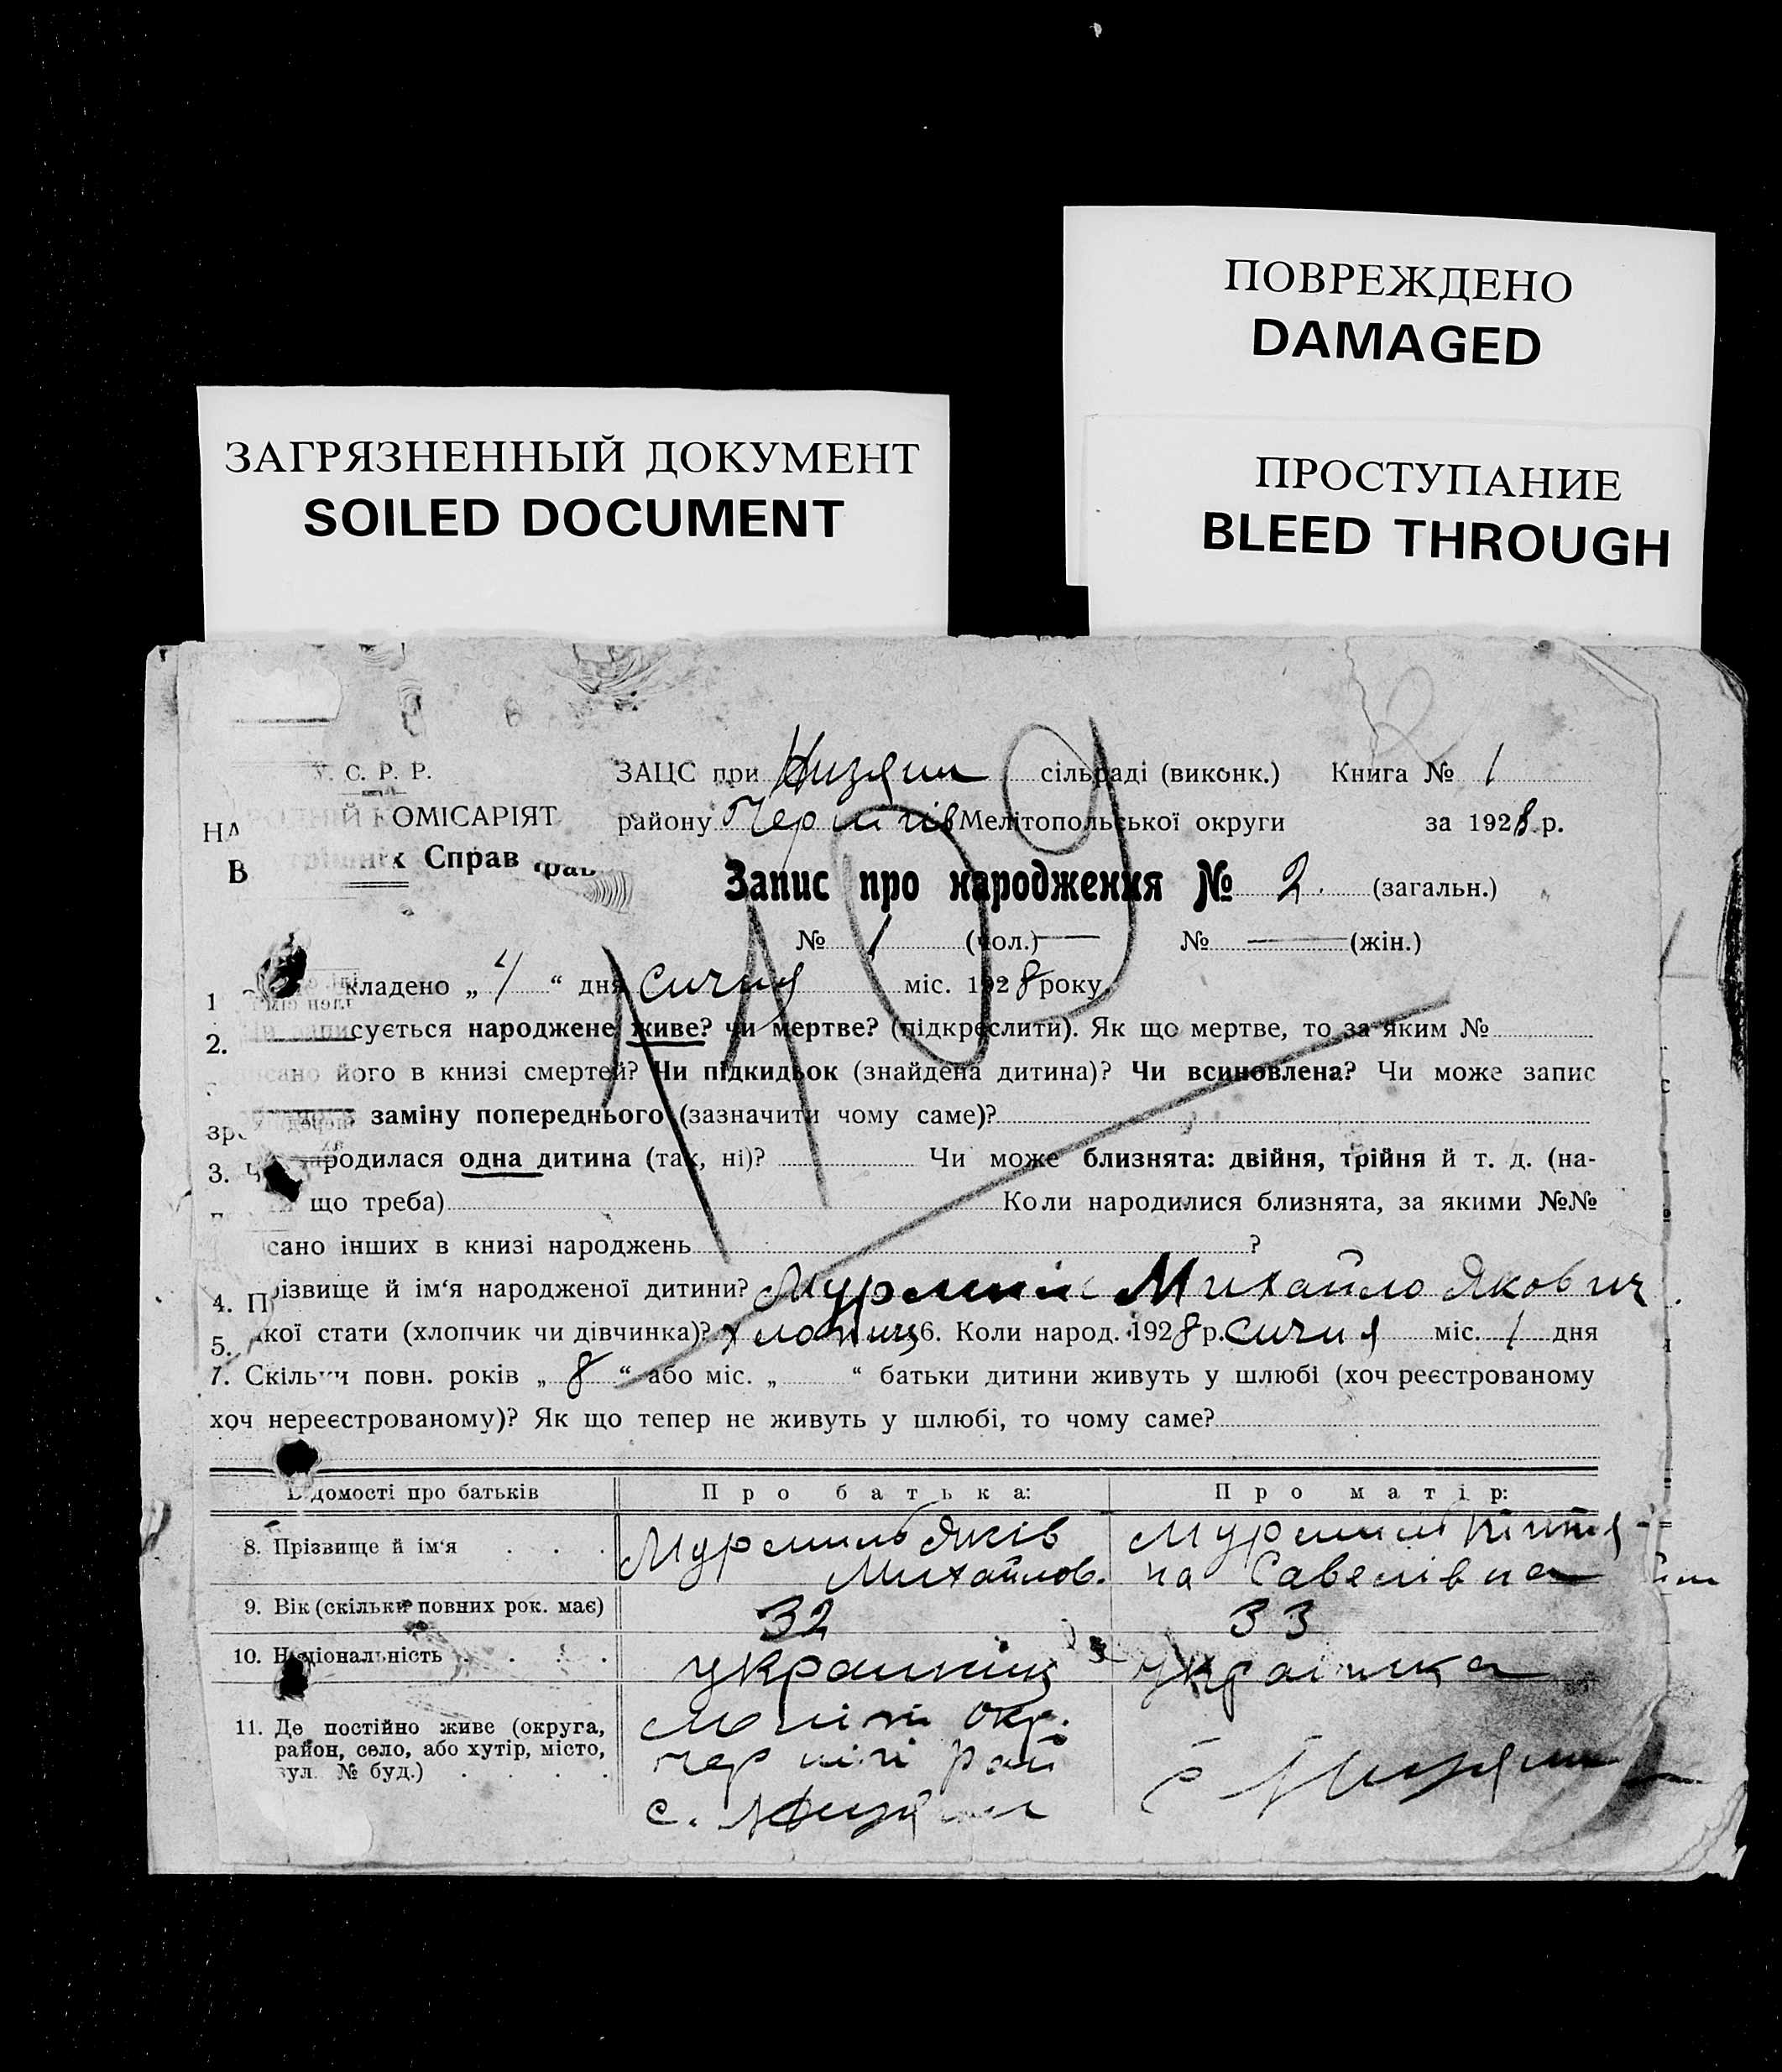 ПОВРЕЖДЕНО
DAMAGED
ЗАГРЯЗНЕННЫЙ ДОКУМЕНТ
SOILED DOCUMENT
ПРОСТУПАНИЕ
BLEED THROUGH
У. С. Р. Р.
ЗАЦС при Низяни сільраді (виконк.) Книга № 1
НА РОДНІЙ КОМІСАРІЯТ
району Чернігів Мелітопольської округи за 1928 р.
Справ
Запис про народження № 2. (загальн.)
№ 1 (чол.) — № — (жін.)
1 кладено „ 4 “ дня Сичня міс. 1928 року
2. писується народжене живе? чи мертве? (підкреслити). Як що мертве, то за яким №
писано його в книзі смертей? Чи підкидьок (знайдена дитина)? Чи всиновлена? Чи може запис
заміну попереднього (зазначити чому саме)?
3. родилася одна дитина (так, ні)? Чи може близнята: двійня, трійня й т. д. (на-
що треба) Коли народилися близнята, за якими №№
сано інших в книзі народжень ?
4. Прізвище й ім'я народженої дитини? Михайло Якович
5. Якої стати (хлопчик чи дівчинка)? хлопчиц 6. Коли народ. 1928 р. Сичня міс. 1 дня
7. Скільки повн. років „ 8 “ або міс. „ “ батьки дитини живуть у шлюбі (хоч реєстрованому
хоч нереєстрованому)? Як що тепер не живуть у шлюбі, то чому саме?
Відомості про батьків
Про батька:
Про матір:
8. Прізвище й ім'я . . .
Яків
Михайлов.
на Савелівна
9. Вік (скільки повних рок. має)
32
33
10. Національність . . . .
українец
українка
11. Де постійно живе (округа,
район, село, або хутір, місто,
вул. № буд.) . . . .
Меліті окр.
чернігі рай
с. Низяни
с Низяни
109